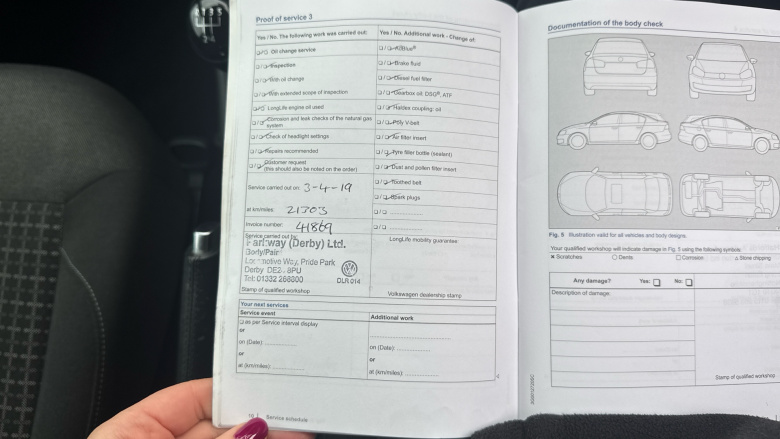 Proof of service 3
Yes / No. The following work was carried out:
Oil change service
Inspection
With oil change
With extended scope of inspection
LongLife engine oil used
Corrosion and leak checks of the natural gas
system
Check of headlight settings
Repairs recommended
Customer request
(this should also be noted on the order)
Service carried out on: 3-4-19
at km/miles: 21303
Invoice number: 41869
Service carried out by:
(Derby) Ltd.
Way, Pride Park
Derby
Tel: 01332
DLR 014
Stamp of qualified workshop
Yes / No. Additional work - Change of:
AdBlue®
Brake fluid
Diesel fuel filter
Gearbox oil: DSG®, ATF
Haldex coupling: oil
Poly V-belt
Air filter insert
Tyre filler bottle (sealant)
Dust and pollen filter insert
Toothed belt
Spark plugs
LongLife mobility guarantee:
Volkswagen dealership stamp
Your next services
Service event
as per Service interval display
or
on (Date):
or
at (km/miles):
Additional work
on (Date):
or
at (km/miles):
Service schedule
Documentation of the body check
Fig. 5 Illustration valid for all vehicles and body designs.
Your qualified workshop will indicate damage in Fig. 5 using the following symbols:
× Scratches ○ Dents □ Corrosion △ Stone chipping
Any damage? Yes: No:
Description of damage:
Stamp of qualified workshop